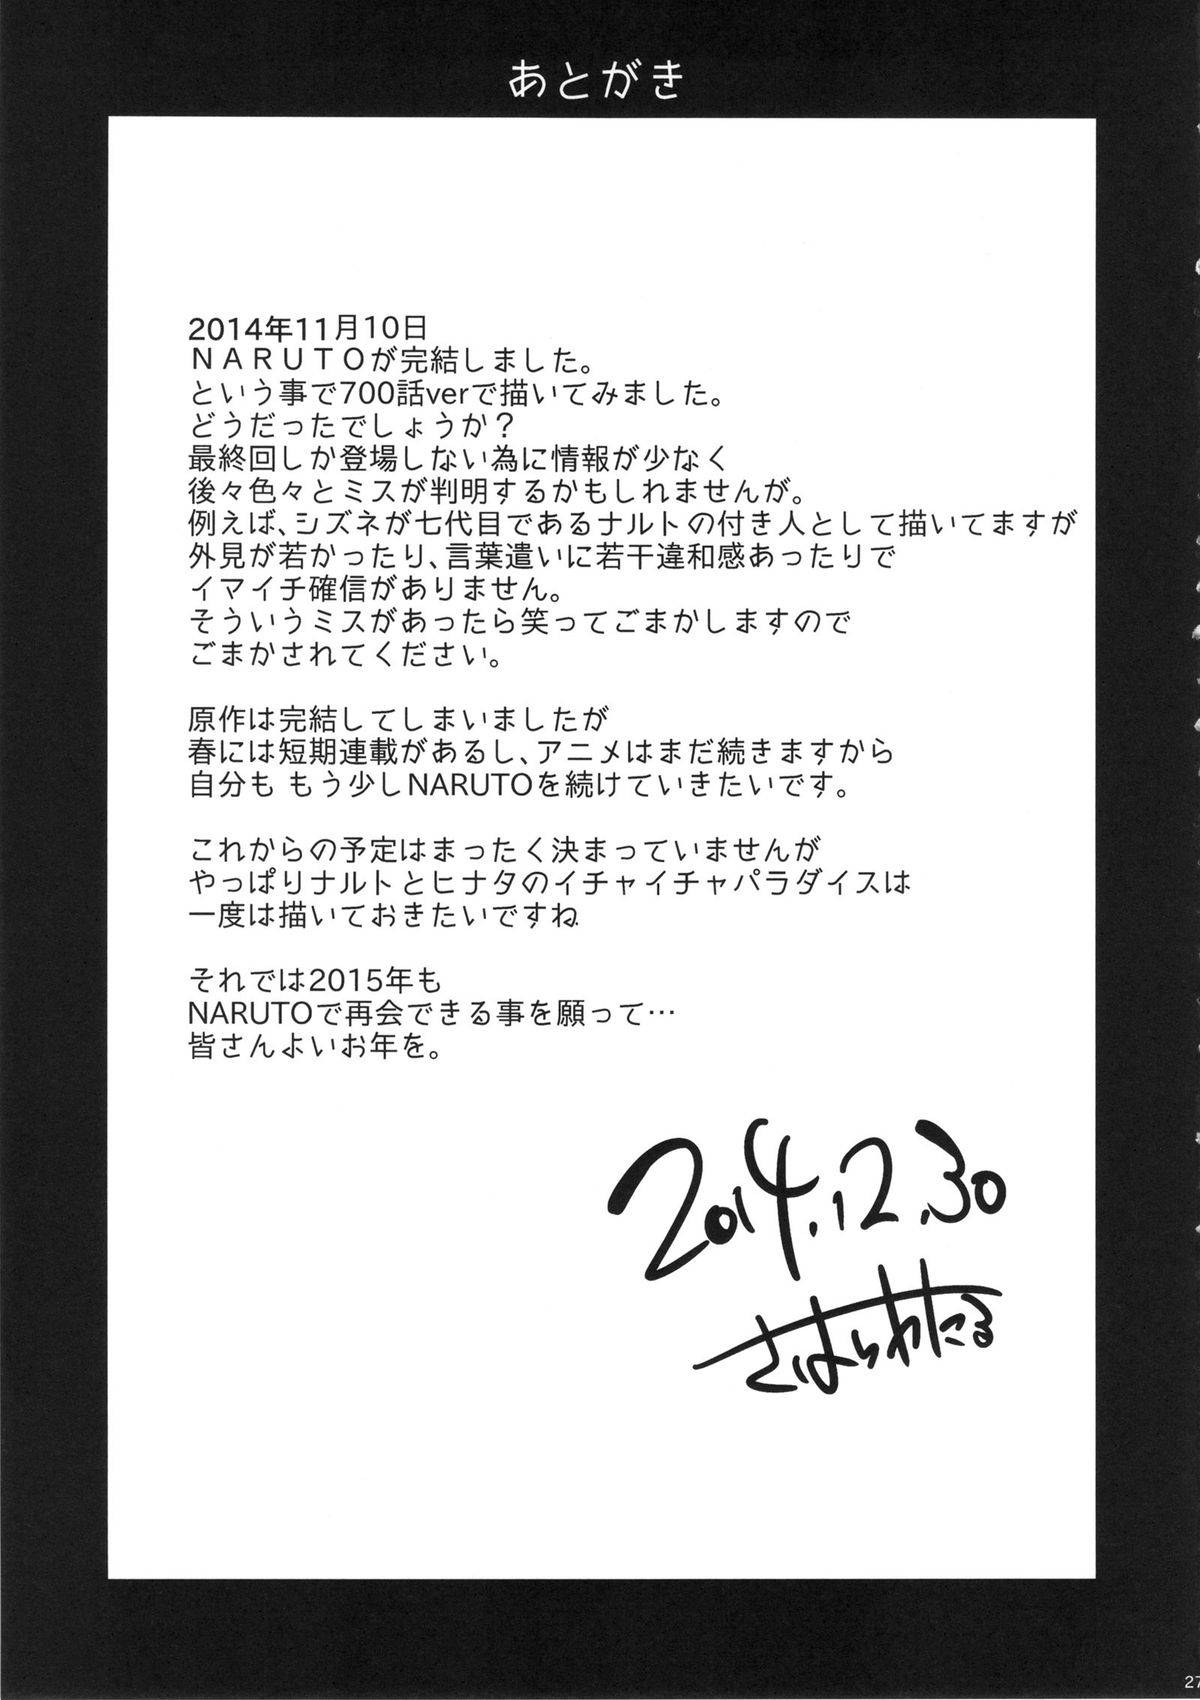 あとがき
2014年11月10日
ＮＡＲＵＴＯが完結しました。
という事で700話verで描いてみました。
どうだったでしょうか？
最終回しか登場しない為に情報が少なく
後々色々とミスが判明するかもしれませんが。
例えば、シズネが七代目であるナルトの付き人として描いてますが
外見が若かったり、言葉遣いに若干違和感あったりで
イマイチ確信がありません。
そういうミスがあったら笑ってごまかしますので
ごまかされてください。
原作は完結してしまいましたが
春には短期連載があるし、アニメはまだ続きますから
自分も もう少しNARUTOを続けていきたいです。
これからの予定はまったく決まっていませんが
やっぱりナルトとヒナタのイチャイチャパラダイスは
一度は描いておきたいですね
それでは2015年も
NARUTOで再会できる事を願って…
皆さんよいお年を。
2014.12.30
さはらわたる
27